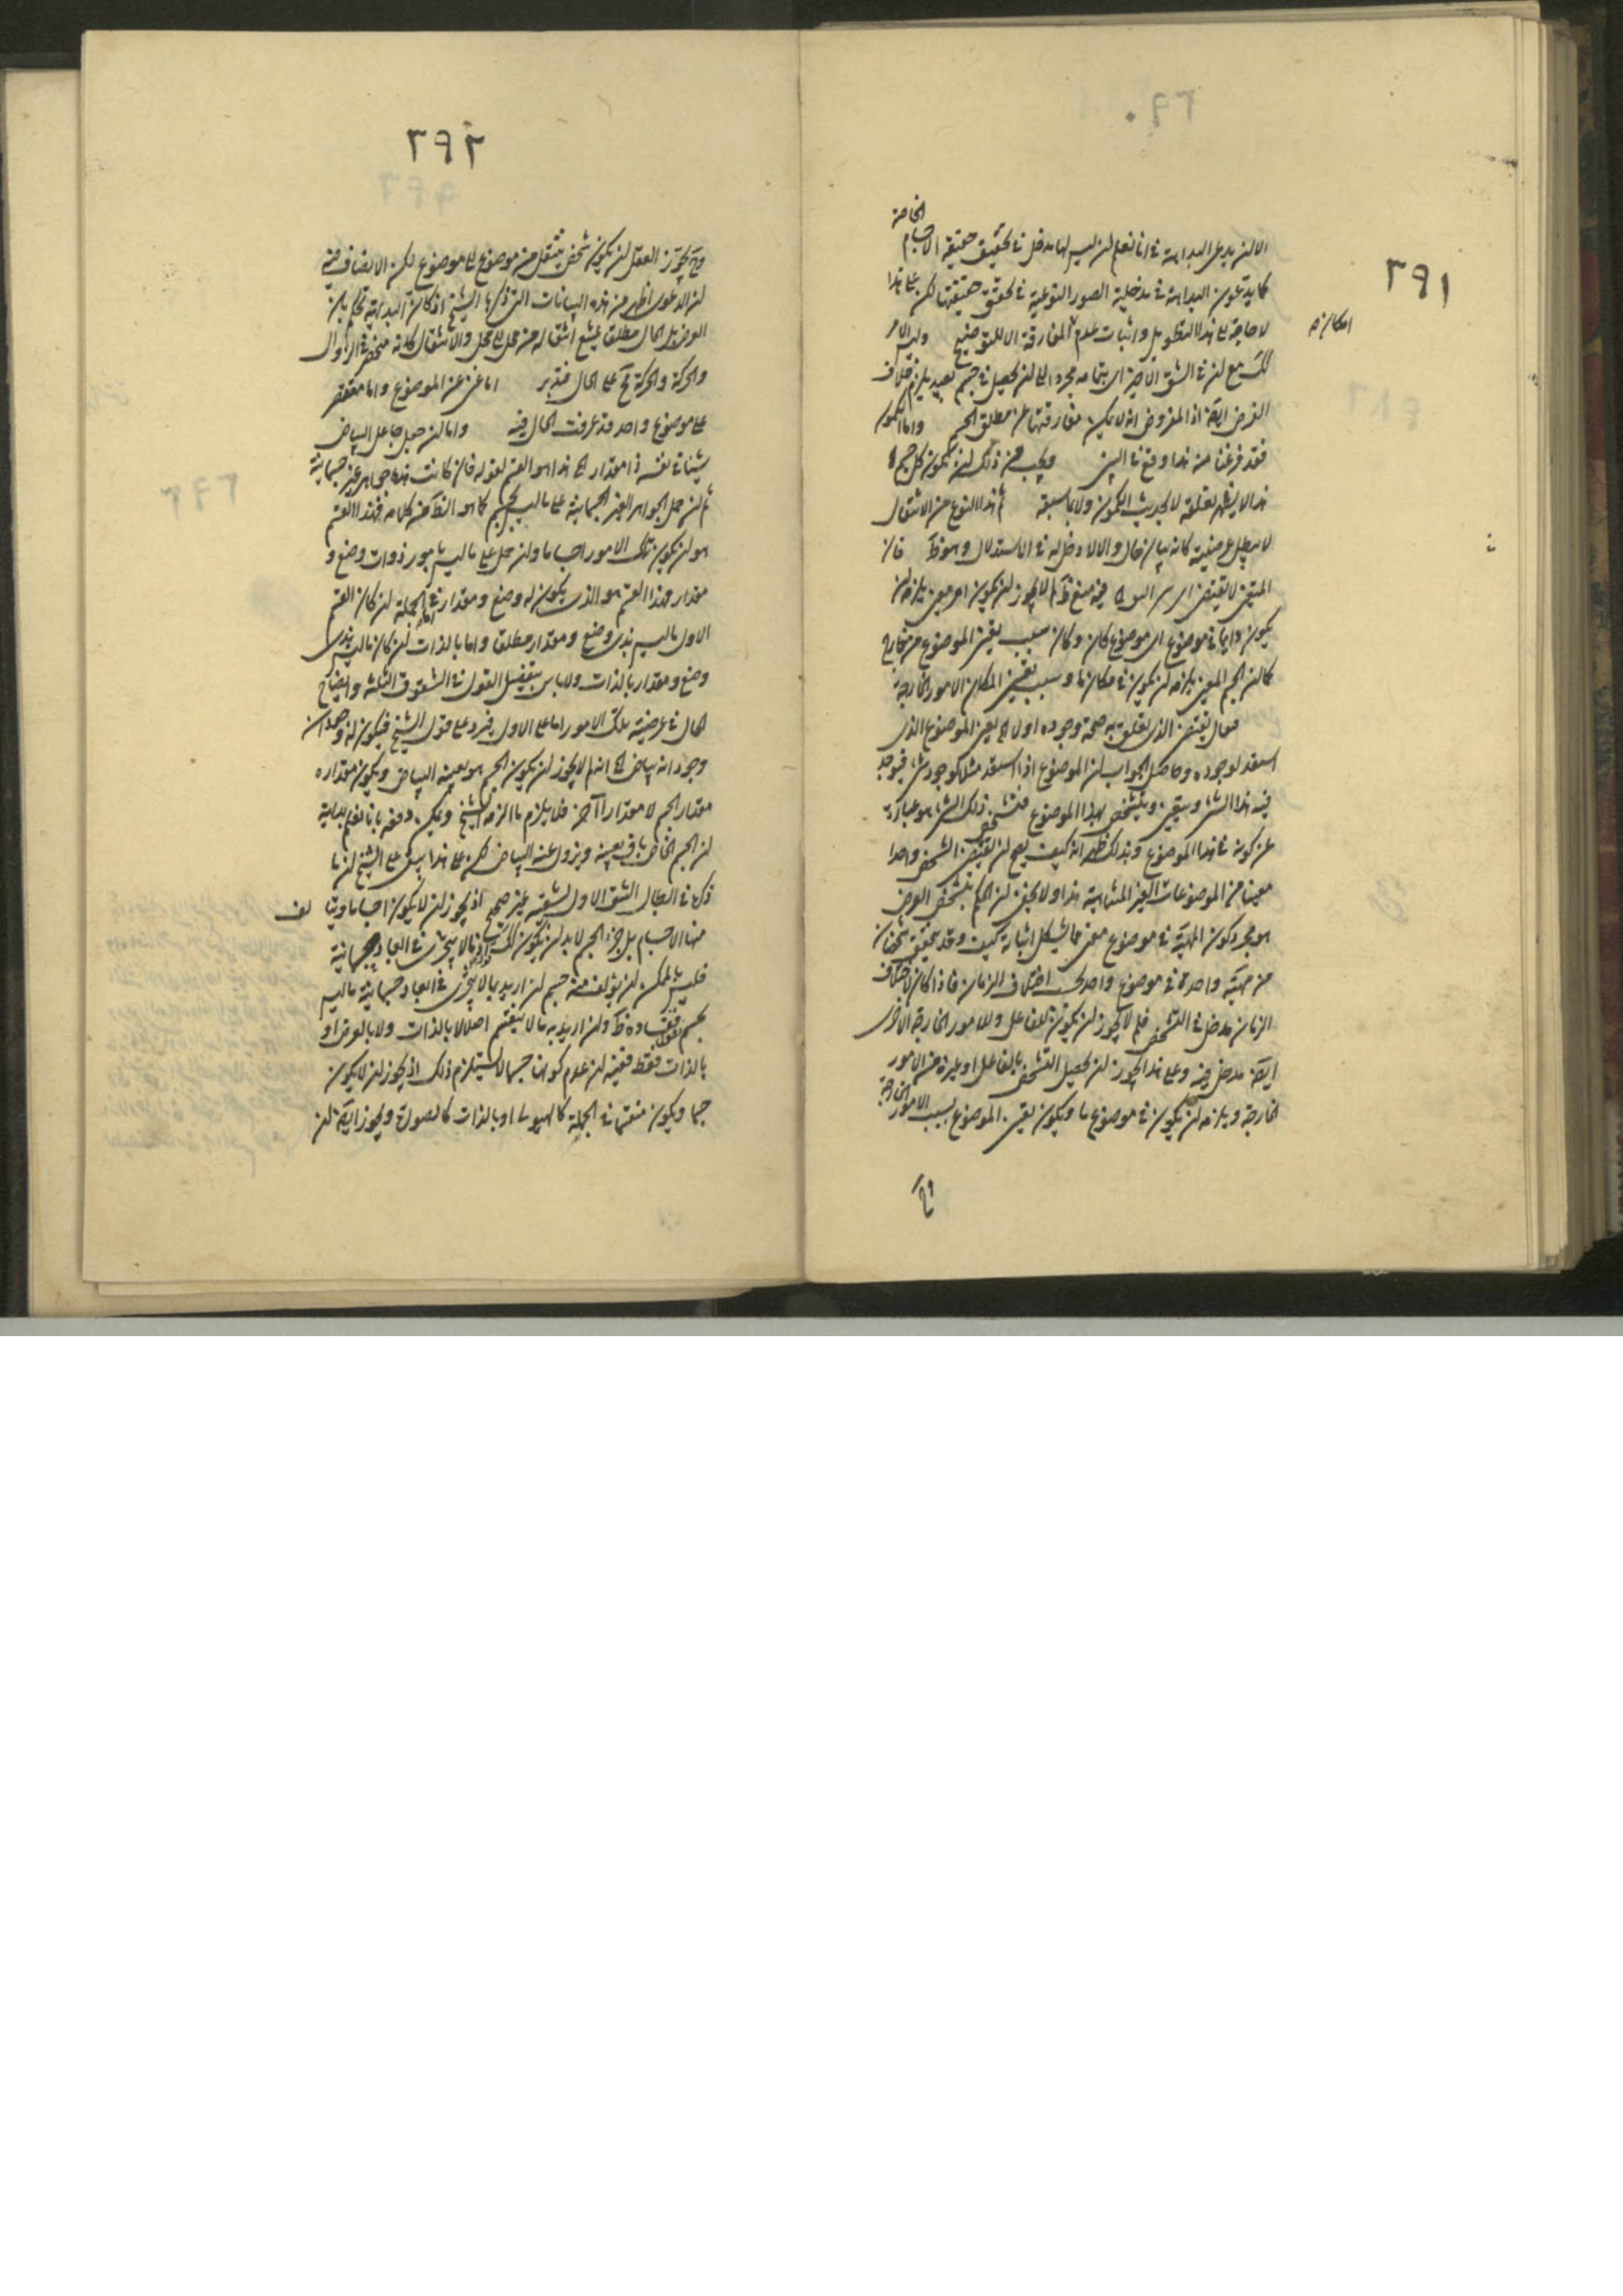 ٢٩١
الخاصة
الا ان يدعى البداهة في انا نعلم ان ليس لها مدخل في تحقيق حقيقة الاجسام
كما يدعون البداهة في مدخلية الصور النوعية في تحقق حقيقتها لكن على هذا
امكان
لا حاجة الى هذا التطويل واثبات عدم المفارقة
مع ان في الشق الاخير اي بقاءه مجردا الى ان يحصل في جسم بعيد يلزم خلاف
الفرض ايضا اذ المفروض انه لا يمكن مفارقتها عن مطلق الجسم واما ان يكون
فقد فرغنا من هذا وقع في البين ويجب من ذلك ان يكون كل جسم
هذا لا يظهر تعلقه لا بحديث الكمون ولا بما سبقه ثم هذا النوع من الانتقال
لا يبطل عرضيته كانه بيان حال والا لا دخل له في الاستدلال وهو ظ فان
فيه منع ظ لم لا يجوز ان يكون امر معين يلزمه ان
يكون دايما في موضوع اي موضوع كان وكان سبب تعين الموضوع من خارج
كما ان الجسم المعين يلزمه ان يكون في مكان ما وسبب تعين المكان الامور الخارجة
قوله الذي تعلق به صحة وجوده اولا اي يعين الموضوع الذي
استعد لوجوده وحاصل الجواب ان الموضوع اذا استعد مثلا لوجود شيء فيوجد
فيه هذا الشيء ويبقى ويتشخص بهذا الموضوع فتشخص ذلك الشيء هو عبارة
عن كونه في هذا الموضوع وبذلك ظهر انه كيف يصح ان يقتضي الشخص واحدا
معينا من الموضوعات الغير المتناهية هذا ولا يخفى ان الحكم بتشخص العرض
هو مجرد كون المهية في موضوع معين مما يشكل اثباته كيف وقد يتحقق شخصان
من مهية واحدة في موضوع واحد بحسب اختلاف الزمان فاذا كان لاختلاف
الزمان مدخل في التشخص فلم لا يجوز ان يكون للفاعل وللامور الخارجة الاخرى
ايضا مدخل فيه وعلى هذا يجوز ان يحصل التشخص بالفاعل او غيره من الامور
الخارجة ويلزمه ان يكون في موضوع ما ويكون تعين الموضوع بسبب الامور الخارجة
وح
٢٩٢
وح يجوز العقل ان يكون شخص ينتقل من موضوع الى موضوع لكن الانصاف فيه
ان الدعوى اظهر من هذه البيانات التي ذكرها الشيخ اذ كان البداهة تحكم بان
العرض بل الحال مطلقا يمتنع انتقاله من محل الى محل والانتقال كانه منحصر في الزوال
والحركة والحركة ح على الحال فتدبر اما غنى عن الموضوع واما مفتقر
على موضوع واحد قد عرفت الحال فيه واما ان جعل جاعل البياض
شيئا في نفسه ذا مقدار اي هذا هو القسم لقوله فان كانت هذه جواهر غير جسمانية
ثم ان حمل الجواهر الغير الجسمانية على ما ليس بجسم كما هو الظ من كلامه فهذا القسم
هو ان يكون تلك الامور اجساما وان حمل على ما ليس بامور ذوات وضع و
مقدار فهذا القسم هو الذي يكون له وضع ومقدار اما في الجملة ان كان القسم
الاول ما ليس بذي وضع ومقدار مطلقا واما بالذات ان كان ما ليس بذي
وضع ومقدار بالذات ولا باس بتفصيل القول في الشقوق الثلثة وايضاح
الحال في عرضية تلك الامور اما على الاول فيرد على قول الشيخ فيكون له وجودان
وجود انه بياض اي انه لم لا يجوز ان يكون الجسم هو بعينه البياض ويكون مقداره
مقدار الجسم لا مقدارا آخر فلا يلزم ما الزمه الشيخ ويمكن دفعه بانا نعلم بداهة
ان الجسم الخاص باق بعينه ويزول عنه البياض لكن على هذا يبقى على الشيخ ان ما
ذكره في ابطال الشق الاول بشقيه غير صحيح اذ يجوز ان لا يكون اجساما
منها الاجسام بل جزء الجسم لا بد ان يكون كك قوله اذ ما لا يتجزى في ابعاد جسمانية
فليس يمكن ان يؤلف منه جسم ان اريد بما لا يتجزى في ابعاد جسمانية ما ليس
بجسم ففساده ظ وان اريد به ما لا ينقسم اصلا لا بالذات ولا بالعرض او
بالذات فقط ففيه ان عدم كونها جسما لا يستلزم ذلك اذ يجوز ان لا يكون
جسما ويكون منقسما في الجملة كالهيولى او بالذات كالصورة ويجوز ايضا ان